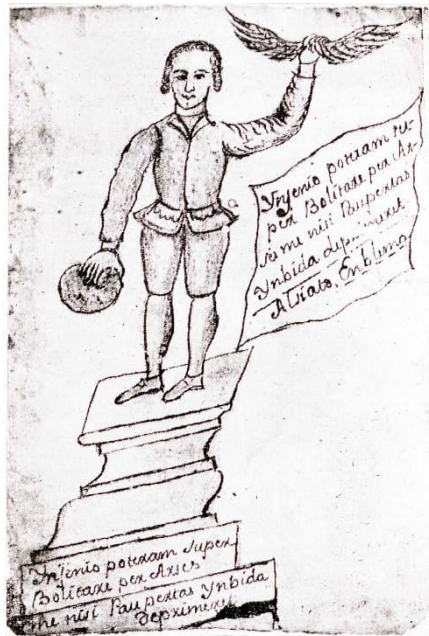 Ynjenio poteram su-
per Bolitare per Ar-
ses me nisi Paupertas
Ynbida deprimeret
Alsiato, Emblema
Ynjenio poteram super
Bolitare per Arses
me nisi Paupertas Ynbida
deprimeret